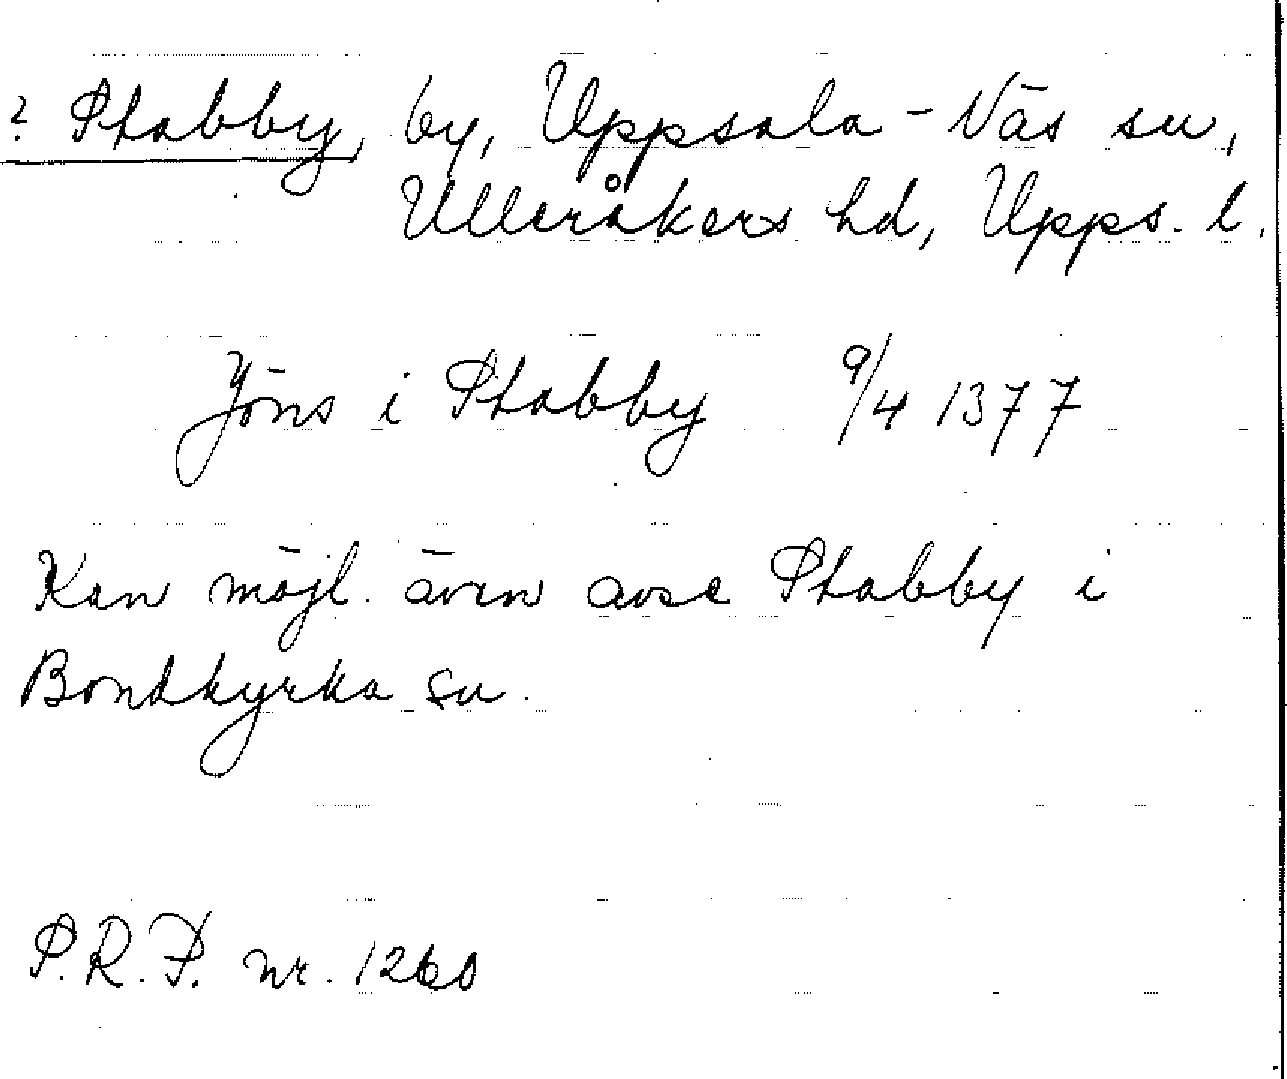 ? Stabby, by, Uppsala-Näs sn,
Ulleråkers hd, Upps. l.
Jöns i Stabby 9/4 1377
Kan möjl. även avse Stabby i
Bondkyrka sn.
S.R.P. nr. 1260